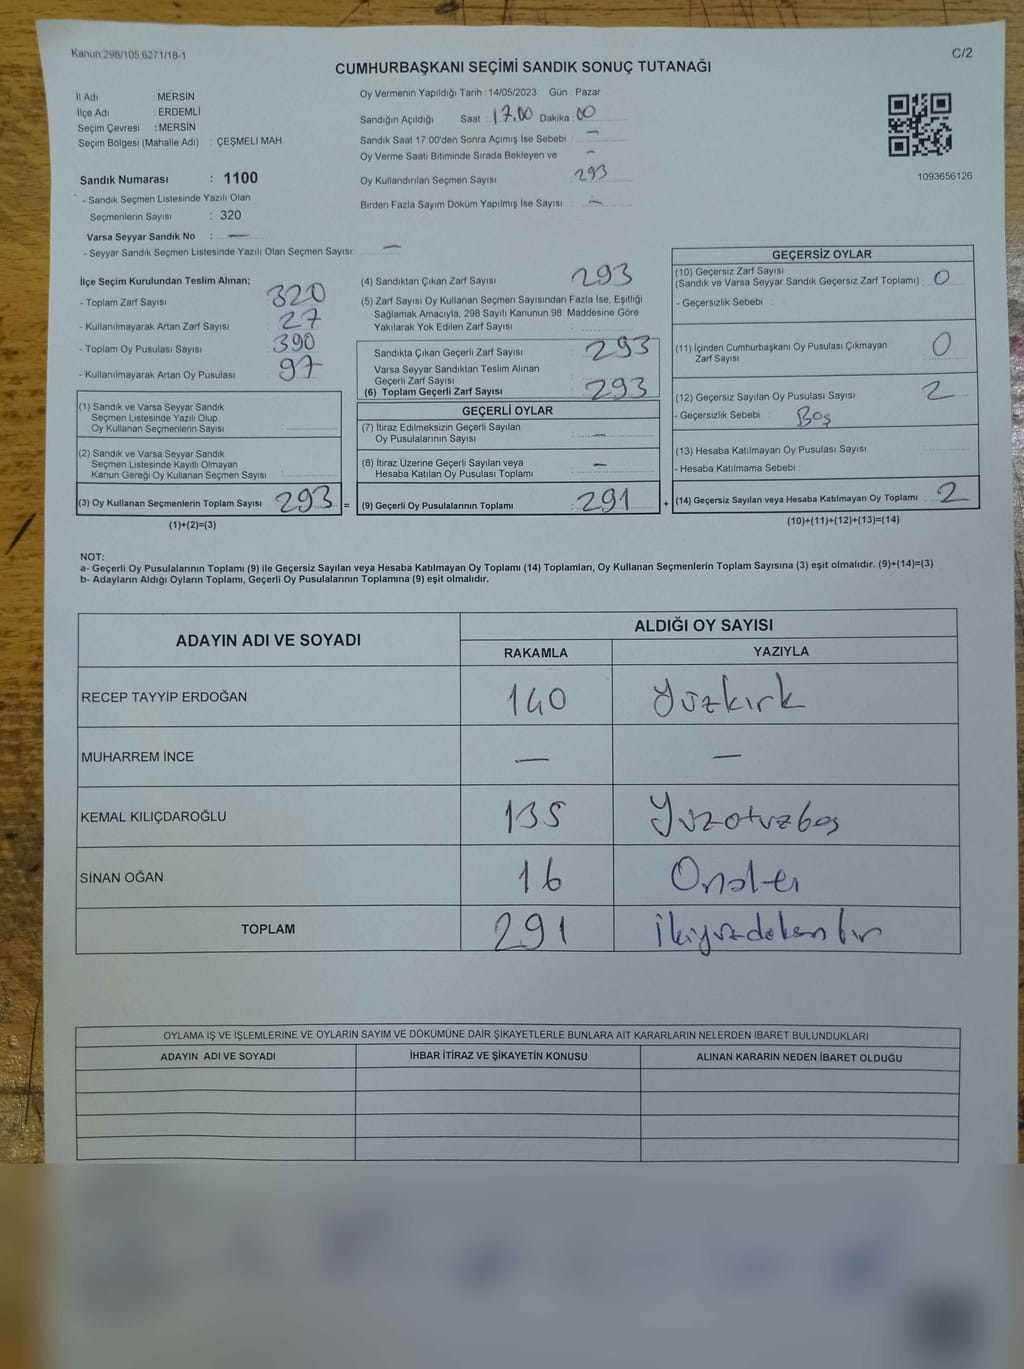 Kanun:298/105,6271/18-1
C/2
CUMHURBAŞKANI SEÇİMİ SANDIK SONUÇ TUTANAĞI
İl Adı : MERSİN
İlçe Adı : ERDEMLİ
Seçim Çevresi : MERSİN
Seçim Bölgesi (Mahalle Adı) : ÇEŞMELİ MAH.
Sandık Numarası : 1100
- Sandık Seçmen Listesinde Yazılı Olan
Seçmenlerin Sayısı : 320
Varsa Seyyar Sandık No : —
- Seyyar Sandık Seçmen Listesinde Yazılı Olan Seçmen Sayısı: —
Oy Vermenin Yapıldığı Tarih : 14/05/2023 Gün : Pazar
Sandığın Açıldığı Saat : 17.00 Dakika : 00
Sandık Saat 17:00'den Sonra Açımış İse Sebebi : —
Oy Verme Saati Bitiminde Sırada Bekleyen ve —
Oy Kullandırılan Seçmen Sayısı : 293
Birden Fazla Sayım Döküm Yapılmış İse Sayısı : —
1093656126
İlçe Seçim Kurulundan Teslim Alınan;
- Toplam Zarf Sayısı : 320
- Kullanılmayarak Artan Zarf Sayısı : 27
- Toplam Oy Pusulası Sayısı : 390
- Kullanılmayarak Artan Oy Pusulası : 97
(1) Sandık ve Varsa Seyyar Sandık
Seçmen Listesinde Yazılı Olup
Oy Kullanan Seçmenlerin Sayısı :
(2) Sandık ve Varsa Seyyar Sandık
Seçmen Listesinde Kayıtlı Olmayan
Kanun Gereği Oy Kullanan Seçmen Sayısı :
(3) Oy Kullanan Seçmenlerin Toplam Sayısı 293 =
(1)+(2)=(3)
(4) Sandıktan Çıkan Zarf Sayısı 293
(5) Zarf Sayısı Oy Kullanan Seçmen Sayısından Fazla İse, Eşitliği
Sağlamak Amacıyla, 298 Sayılı Kanunun 98. Maddesine Göre
Yakılarak Yok Edilen Zarf Sayısı :
Sandıkta Çıkan Geçerli Zarf Sayısı : 293
Varsa Seyyar Sandıktan Teslim Alınan
Geçerli Zarf Sayısı
(6) Toplam Geçerli Zarf Sayısı : 293
GEÇERLİ OYLAR
(7) İtiraz Edilmeksizin Geçerli Sayılan
Oy Pusulalarının Sayısı : —
(8) İtiraz Üzerine Geçerli Sayılan veya
Hesaba Katılan Oy Pusulası Toplamı : —
(9) Geçerli Oy Pusulalarının Toplamı : 291 +
GEÇERSİZ OYLAR
(10) Geçersiz Zarf Sayısı
(Sandık ve Varsa Seyyar Sandık Geçersiz Zarf Toplamı) : 0
- Geçersizlik Sebebi :
(11) İçinden Cumhurbaşkanı Oy Pusulası Çıkmayan
Zarf Sayısı : 0
(12) Geçersiz Sayılan Oy Pusulası Sayısı 2
- Geçersizlik Sebebi : Boş
(13) Hesaba Katılmayan Oy Pusulası Sayısı
- Hesaba Katılmama Sebebi :
(14) Geçersiz Sayılan veya Hesaba Katılmayan Oy Toplamı : 2
(10)+(11)+(12)+(13)=(14)
NOT:
a- Geçerli Oy Pusulalarının Toplamı (9) ile Geçersiz Sayılan veya Hesaba Katılmayan Oy Toplamı (14) Toplamları, Oy Kullanan Seçmenlerin Toplam Sayısına (3) eşit olmalıdır. (9)+(14)=(3)
b- Adayların Aldığı Oyların Toplamı, Geçerli Oy Pusulalarının Toplamına (9) eşit olmalıdır.
ADAYIN ADI VE SOYADI
ALDIĞI OY SAYISI
RAKAMLA YAZIYLA
RECEP TAYYİP ERDOĞAN 140 Yüzkırk
MUHARREM İNCE — —
KEMAL KILIÇDAROĞLU 135 Yüzotuzbeş
SİNAN OĞAN 16 Onaltı
TOPLAM 291 İkiyüzdoksanbir
OYLAMA İŞ VE İŞLEMLERİNE VE OYLARIN SAYIM VE DÖKÜMÜNE DAİR ŞİKAYETLERLE BUNLARA AİT KARARLARIN NELERDEN İBARET BULUNDUKLARI
ADAYIN ADI VE SOYADI İHBAR İTİRAZ VE ŞİKAYETİN KONUSU ALINAN KARARIN NEDEN İBARET OLDUĞU